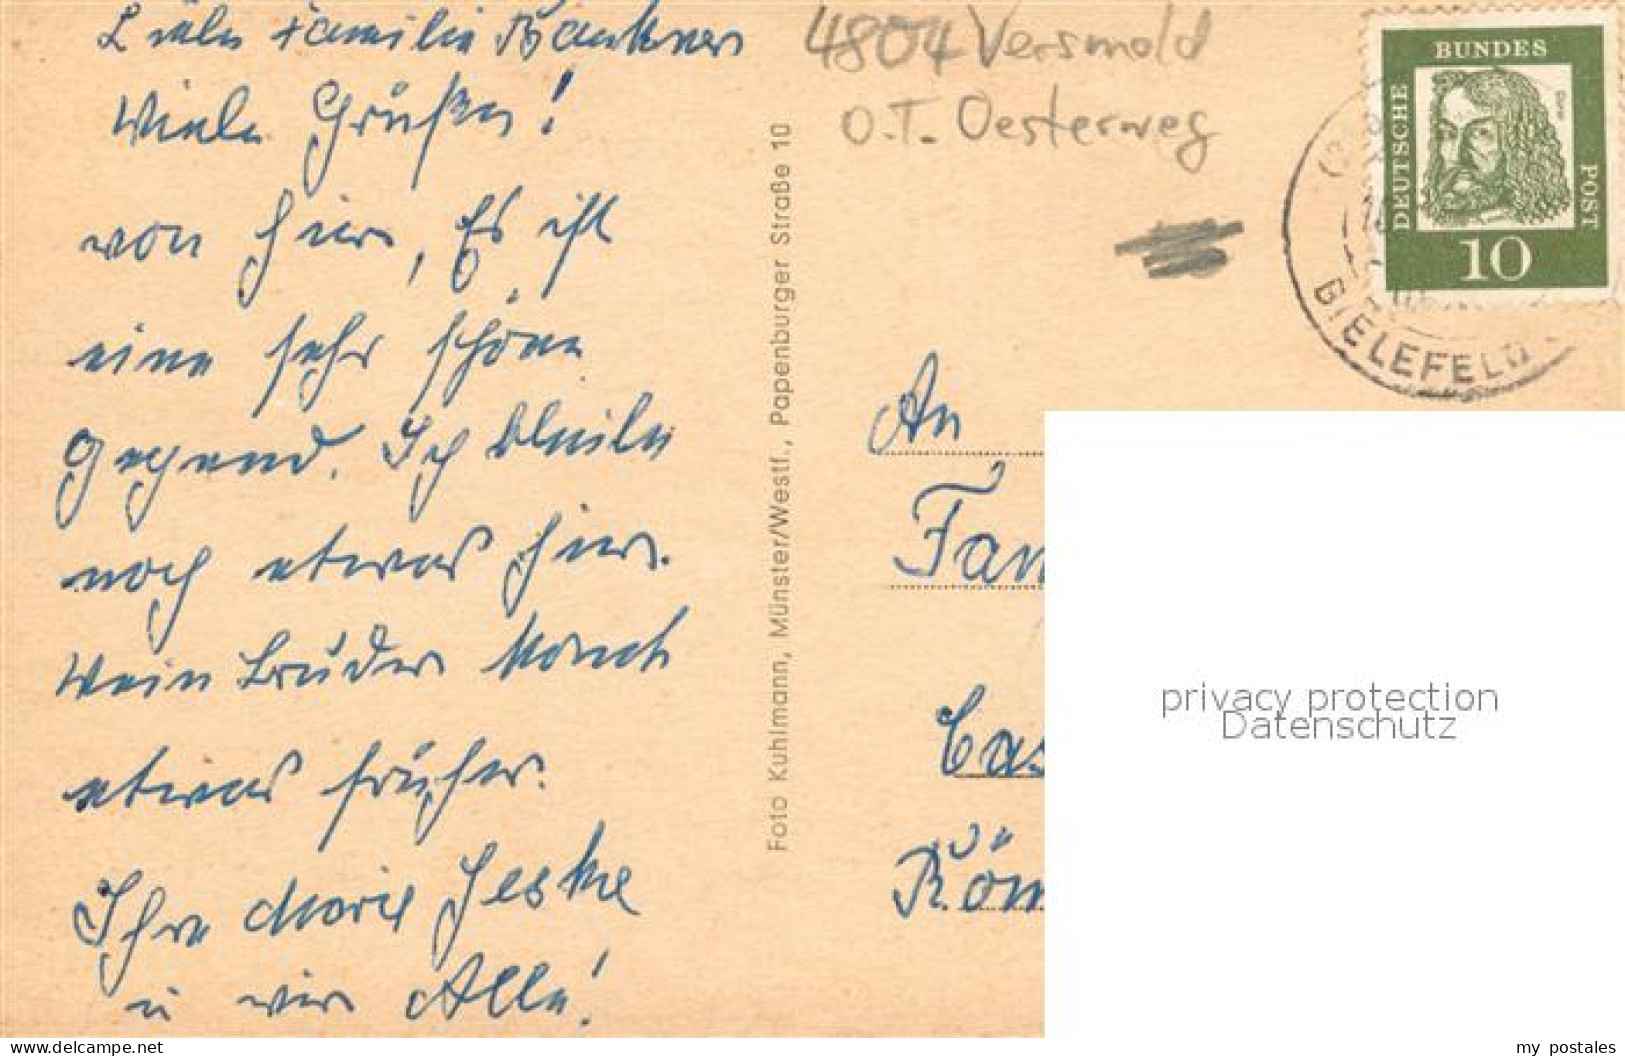 Liebe Familie
Viele Grüße!
von hier, Es ist
eine sehr schöne
Gegend. Ich bleibe
noch etwas hier.
Mein Bruder
etwas früher.
Ihre Marie Jeske
u wir Alle!
Foto Kuhlmann, Münster/Westf., Papenburger Straße 10
4804 Versmold
O.T. Oesterweg
DEUTSCHE
BUNDES
POST
10
BIELEFELD
An
Fam
Cas
Röm
privacy protection
Datenschutz
www.delcampe.net
my_postales